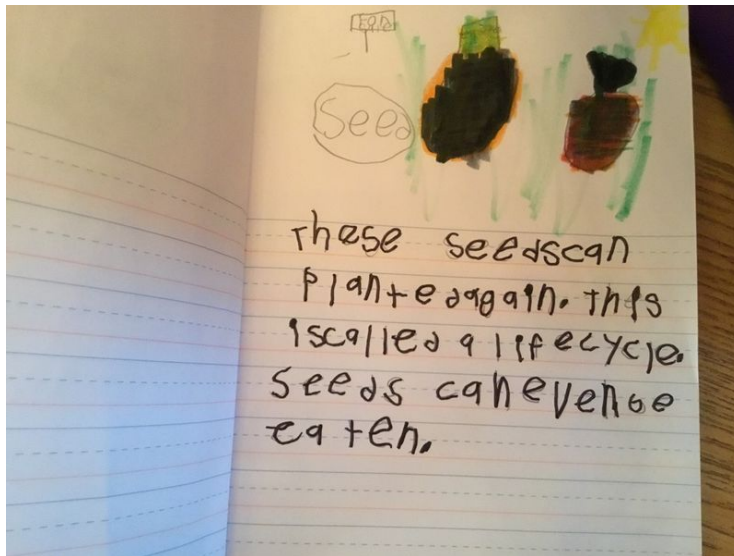 Seed
These seedscan
plantedagain. this
iscalled a lifecycle.
seeds canevenbe
eaten.